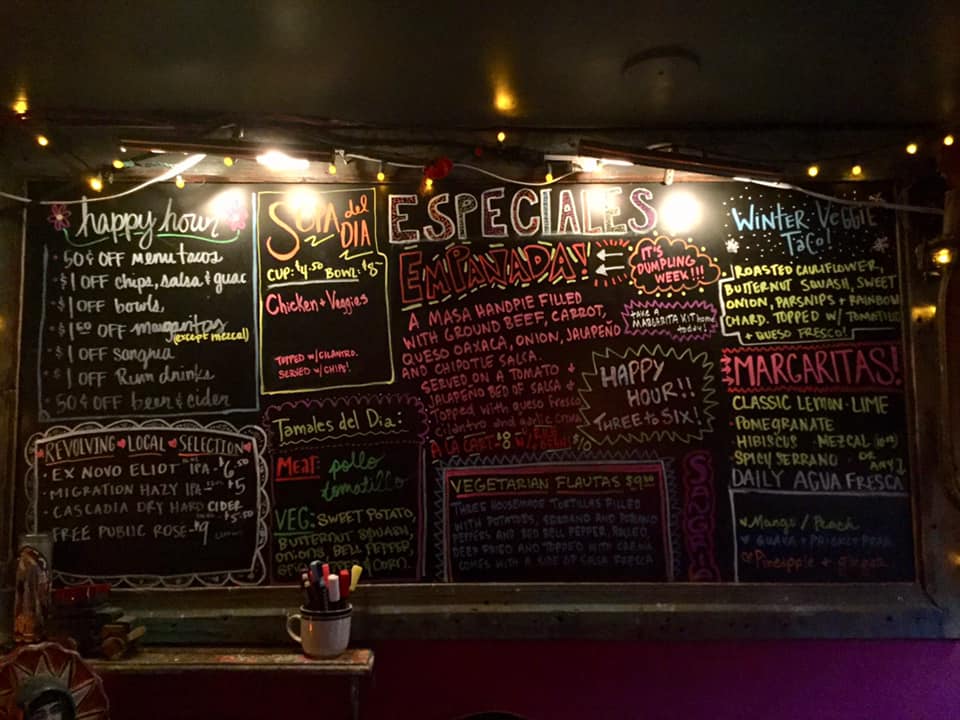 happy hour
• 50¢ OFF menu tacos
• $1 OFF chips, salsa & guac
• $1 OFF bowls,
• $1.50 OFF margaritas
(except mezcal)
• $1 OFF sangria
• $1 OFF Rum drinks
• 50¢ OFF beer & cider
REVOLVING LOCAL SELECTION
• EX NOVO ELIOT IPA $6.50
• MIGRATION HAZY IPA $5
• CASCADIA DRY HARD CIDER
$5.50
FREE PUBLIC ROSE - $9
SOPA del
DIA
CUP: $4.50 BOWL: $8-
Chicken + Veggies
TOPPED W/CILANTRO.
SERVED W/CHIPS!
Tamales del Dia:
MEAT: pollo
tomatillo
VEG: SWEET POTATO,
BUTTERNUT SQUASH,
ONIONS, BELL PEPPER,
+ CORN.
ESPECIALES
EMPANADA!
IT'S
DUMPLING
WEEK!!!
A MASA HANDPIE FILLED
WITH GROUND BEEF, CARROT,
QUESO OAXACA, ONION, JALAPEÑO
AND CHIPOTLE SALSA.
SERVED ON A TOMATO +
JALAPEÑO BED OF SALSA &
Topped with queso fresco
cilantro and
A LA CART $8
TAKE A
MARGARITA KIT home
today!
HAPPY
HOUR!!
THREE to SIX!
VEGETARIAN FLAUTAS
THREE HOUSEMADE TORTILLAS FILLED
WITH POTATOES, SERRANO AND POBLANO
PEPPERS AND RED BELL PEPPER, ROLLED,
DEEP FRIED AND TOPPED WITH CREMA
COMES WITH A SIDE OF SALSA FRESCA
SANGRIA
WINTER VEGGIE
TACO!
ROASTED CAULIFLOWER,
BUTTERNUT SQUASH, SWEET
ONION, PARSNIPS + RAINBOW
CHARD. TOPPED W/ TOMATILLO
+ QUESO FRESCO!
MARGARITAS!
CLASSIC LEMON-LIME
POMEGRANATE
HIBISCUS MEZCAL
SPICY SERRANO OR ANY
DAILY AGUA FRESCA
Mango / Peach
GUAVA + PRICKLY PEAR
Pineapple +